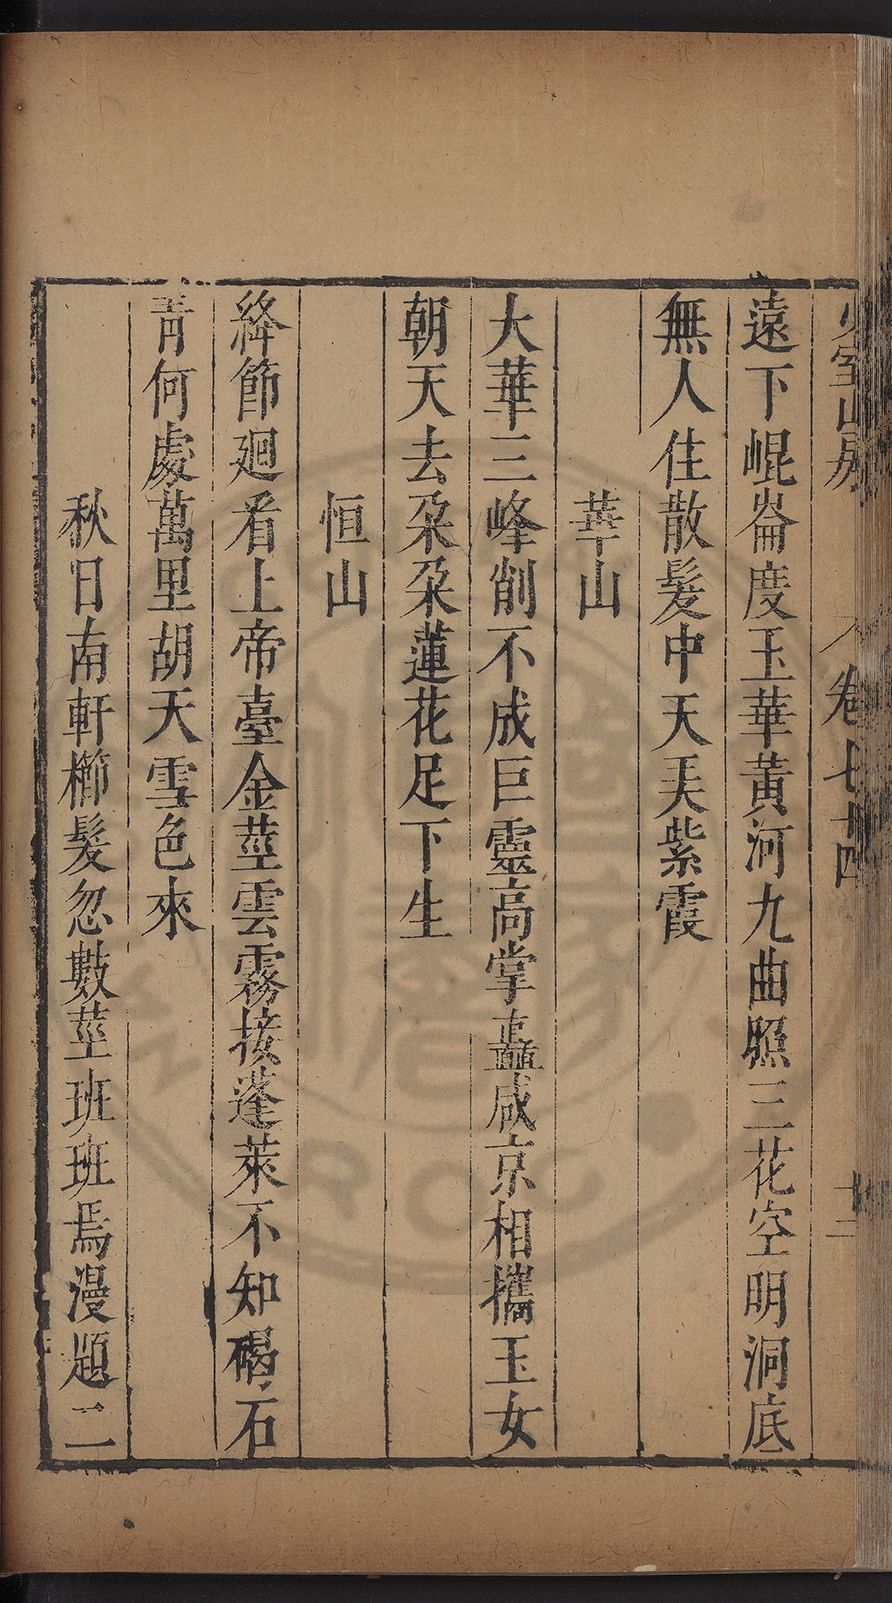 少室山房 卷七十四 十三
遠下崐崙度玉華黃河九曲照三花空明洞底
無人住散髮中天美紫霞
華山
大華三峰削不成巨靈高掌矗咸京相攜玉女
朝天去朶朶蓮花足下生
恒山
絳節廻看上帝臺金莖雲霧接蓬萊不知碣石
青何處萬里胡天雪色來
秋日南軒櫛髮忽數莖班班焉漫題二